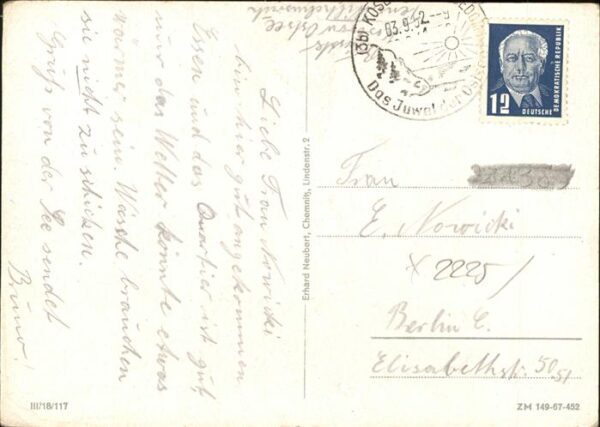 Liebe Frau Nowicki
bin hier gut angekommen
Essen und das Quartier ist gut,
nur das Wetter könnte etwas
wärmer sein. Wäsche brauchen
sie nicht zu schicken.
Gruß von der See sendet
Bruno!
Ostsee
(3b) KÖSE
03.9.52.--9
Das Juwel der
12
DEUTSCHE
DEMOKRATISCHE REPUBLIK
Erhard Neubert, Chemnitz, Lindenstr. 2
Frau
E. Nowicki
X 2225/
Berlin C.
Elisabethstr. 50/51
III/18/117
ZM 149-67-452